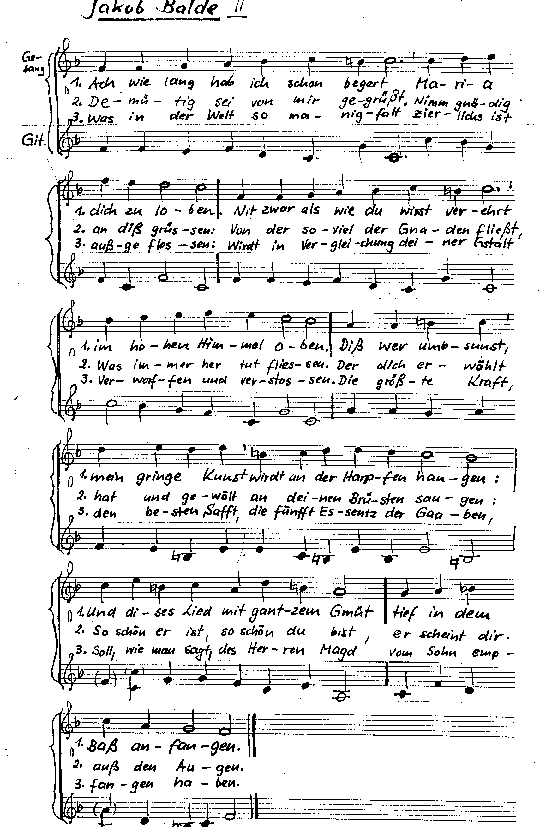 Jakob Balde II
Ge-
sang
1. Ach wie lang hab ich schon begert Ma-ri-a
2. De-mü-tig sei von mir ge-grüßt, Nimm gnä-dig
3. Was in der Welt so ma-nig-falt zier-lichs ist
Git.
1. dich zu lo-ben. Nit zwar als wie du wirst ver-ehrt
2. an diß grüs-sen: Von der so-viel der Gna-den fließt,
3. auß-ge flos-sen: Wirdt in Ver-glei-chung dei-ner Gstalt
1. im ho-hen Him-mel o-ben. Diß wer umb-sunst,
2. Was im-mer her tut flies-sen. Der dich er-wöhlt
3. Ver-worf-fen und ver-stos-sen. Die größ-te Kraft,
1. mein gringe Kunst wirdt an der Harp-fen han-gen:
2. hat und ge-wölt an dei-nen Brü-sten sau-gen:
3. den be-sten Safft, die fünfft Es-sentz der Gaa-ben,
1. Und di-ses Lied mit gant-zem Gmüt tief in dem
2. So schön er ist, so schön du bist, er scheint dir.
3. Soll, wie man sagt, des Her-ren Magd vom Sohn emp-
1. Baß an-fan-gen.
2. auß den Au-gen.
3. fan-gen ha-ben.